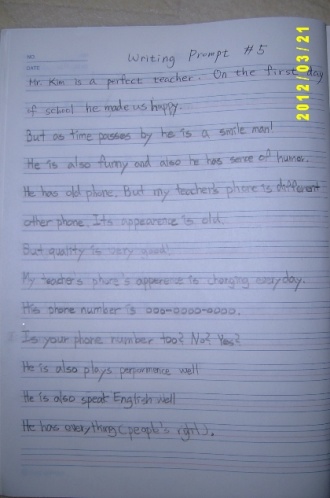 NO
DATE
2012/03/21
Writing Prompt #5
Mr. Kim is a perfect teacher. On the first day
of school he made us happy.
But as time passes by he is a smile man!
He is also funny and also he has sense of humor.
He has old phone. But my teacher's phone is different
other phone. Its appearence is old.
But quality is very good!
My teacher's phone's apperence is changing everyday.
His phone number is 000-0000-0000.
Is your phone number too? No? Yes?
He is also plays performance well
He is also speak English well
He has everything (people's right).